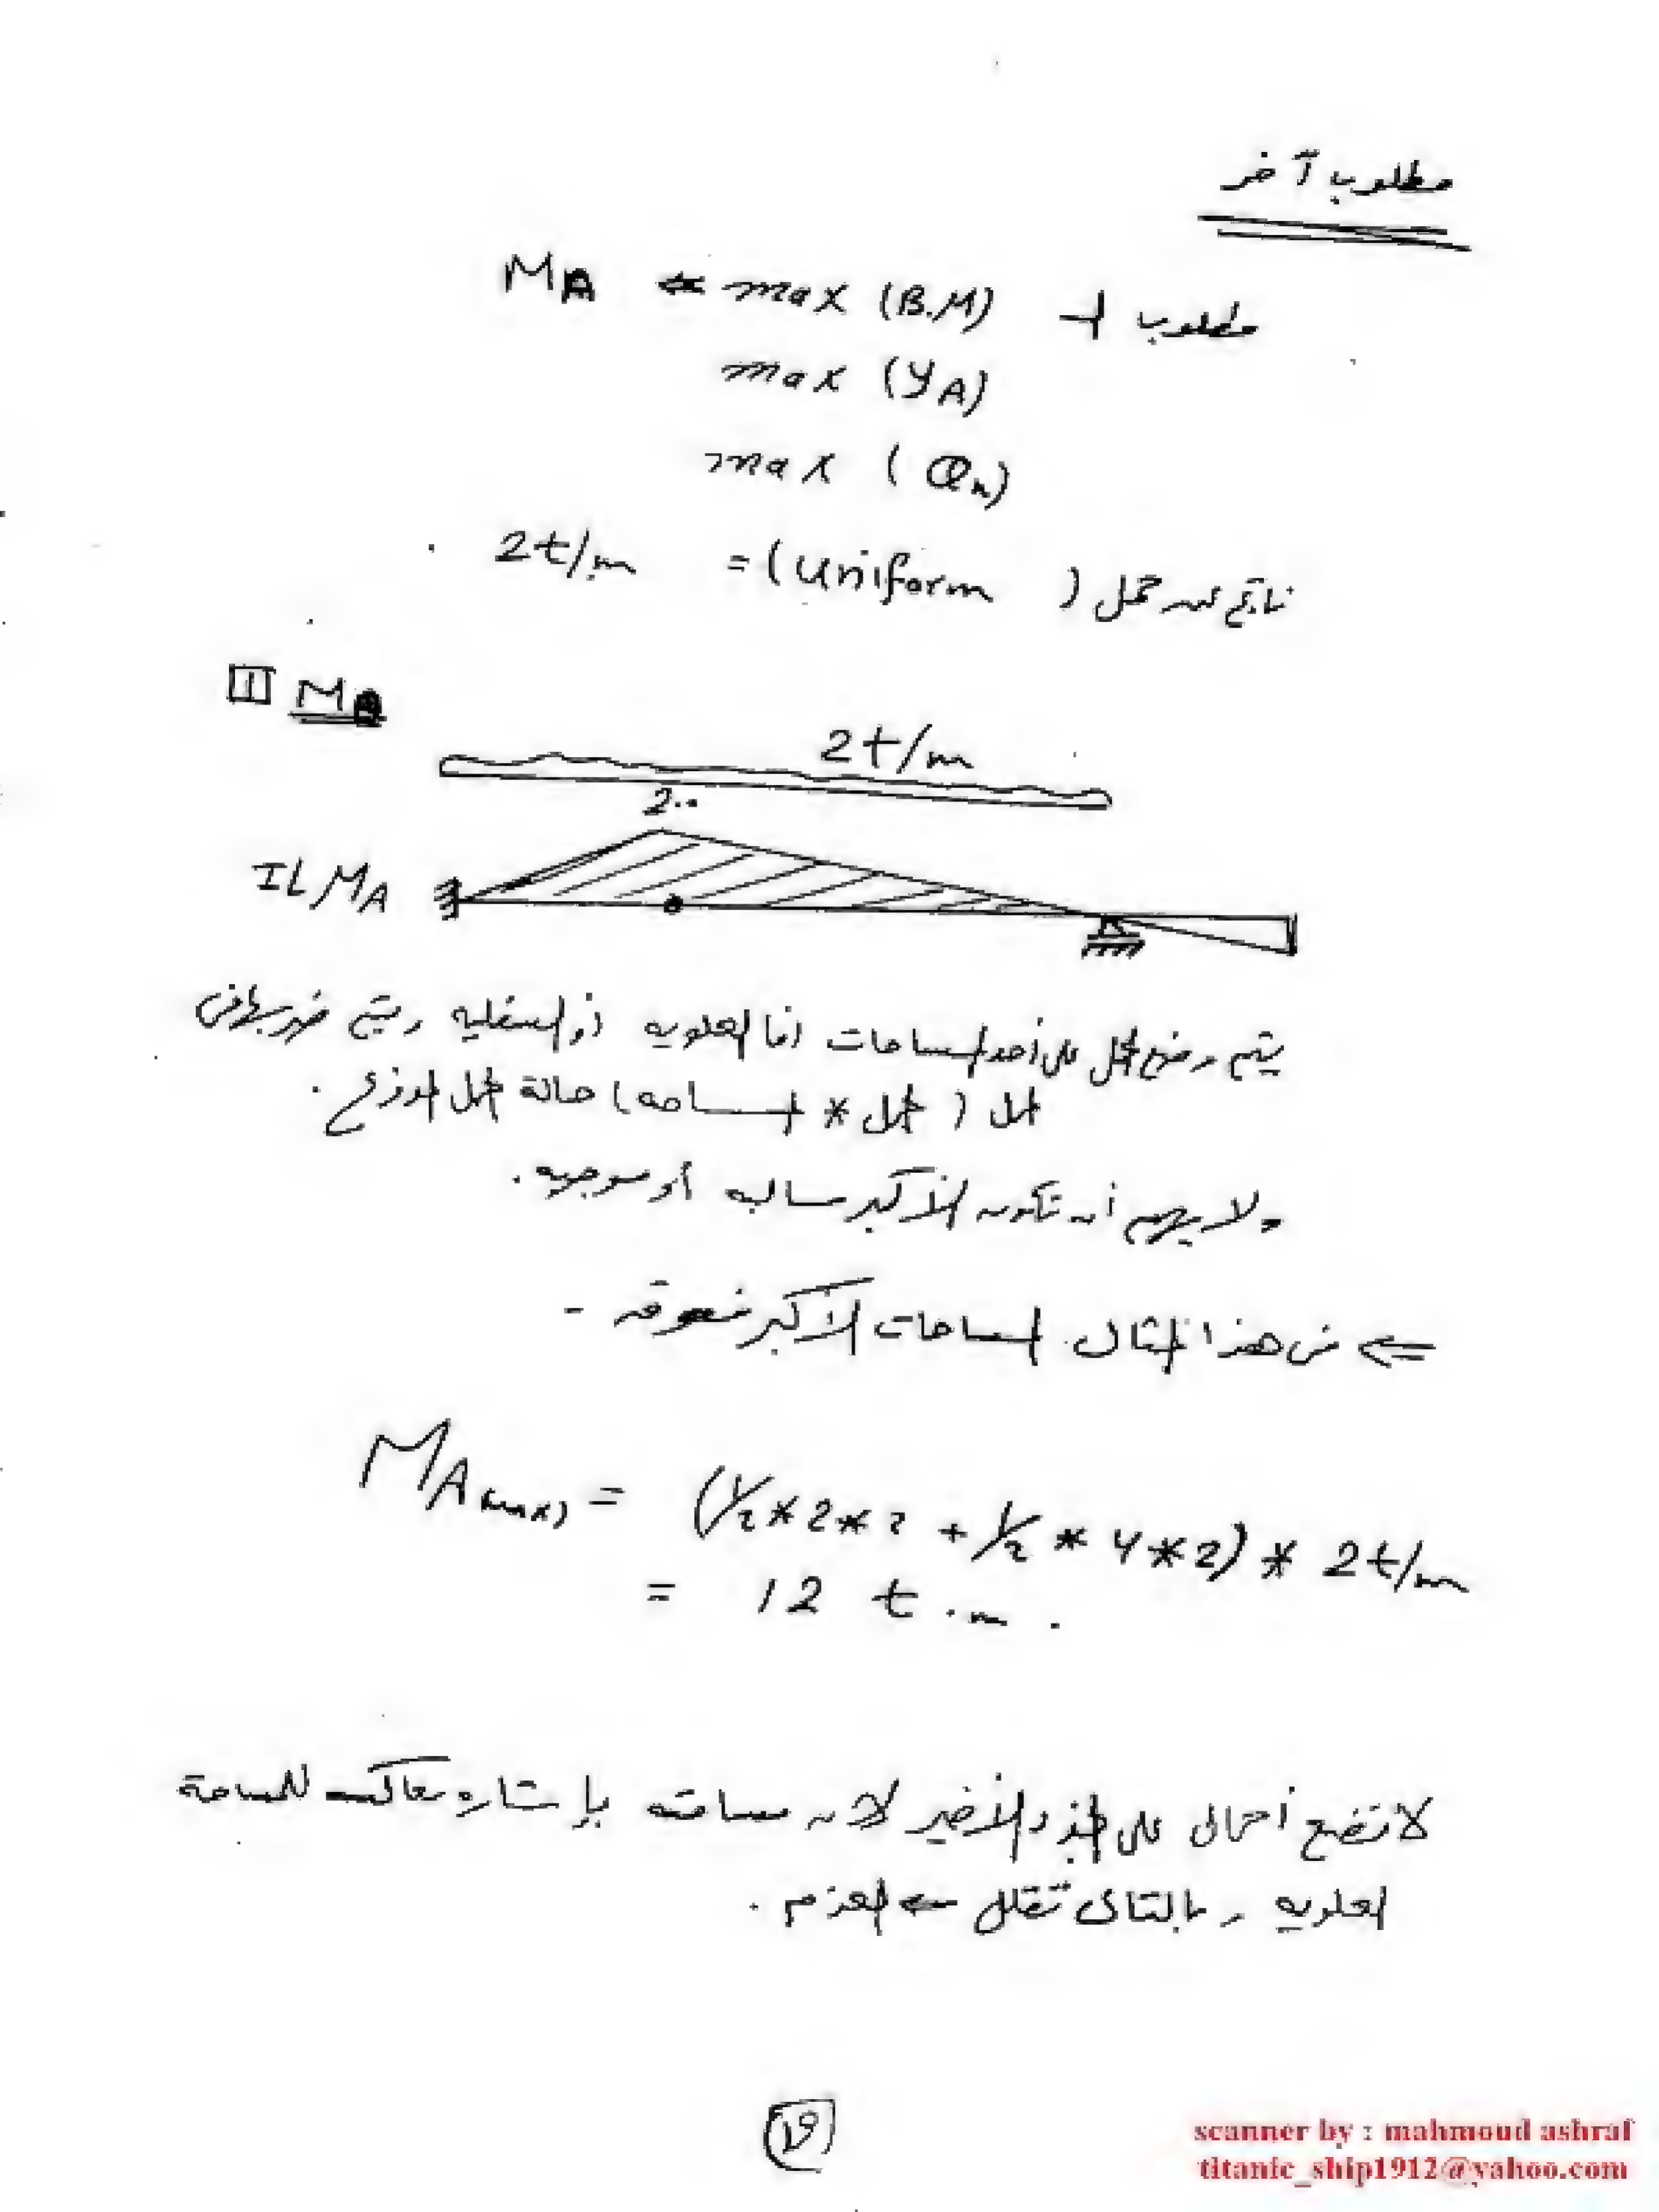 مطلوب آخر
مطلوب max (B.M) MA
max (yA)
max (Qn)
ناتج عن حمل (uniform) = 2t/m
1 MA
2t/m
2..
IL MA
يتم وضع الحمل على أحد المساحات إما العلويه أو السفليه ويتم ضربها فى
الحمل (الحمل * المساحه) حالة الحمل الموزع.
ولا يهم أن تكون الأكبر سالبه أو موجبه.
⇐ فى هذا المثال المساحات الأكبر فوق -
MA(max) = (1/2*2*2 + 1/2 * 4*2) * 2t/m
= 12 t.m.
لا نضع أحمال على الجزء الأخير لأن مساحته بإشاره معاكسه للمساحة
العلويه وبالتالى تقلل ← العزم.
19
scanner by : mahmoud ashraf
titanic_ship1912@yahoo.com